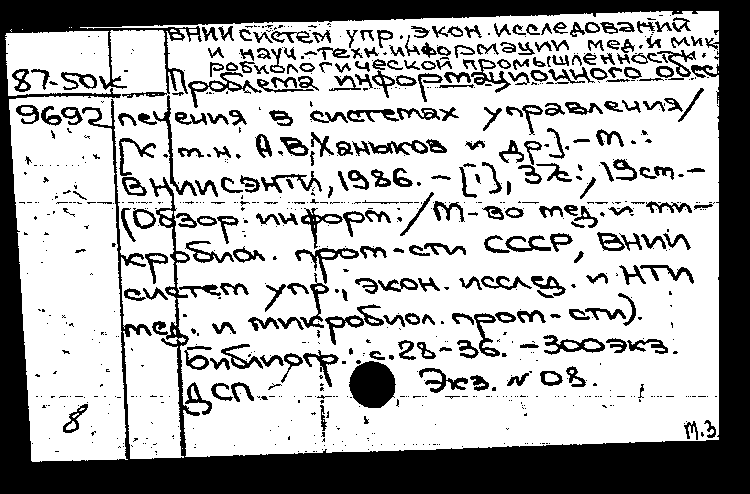 ВНИИ систем упр., экон. исследований
и науч.-техн. информации мед. и мик
робиологической промышленности.
87-50к Проблема информационного обес
9692 печения в системах управления/
[К.т.н. А.В.Ханыков и др.].-М.:
ВНИИСЭНТИ, 1986. - [1], 37с.; 19см.-
(Обзор. информ. / М-во мед. и ми-
кробиол. пром-сти СССР, ВНИИ
систем упр., экон. исслед. и НТИ
мед. и микробиол. пром-сти).
Библиогр.: с.28-36. -300экз.
ДСП. Экз. N 08.
8
т.з